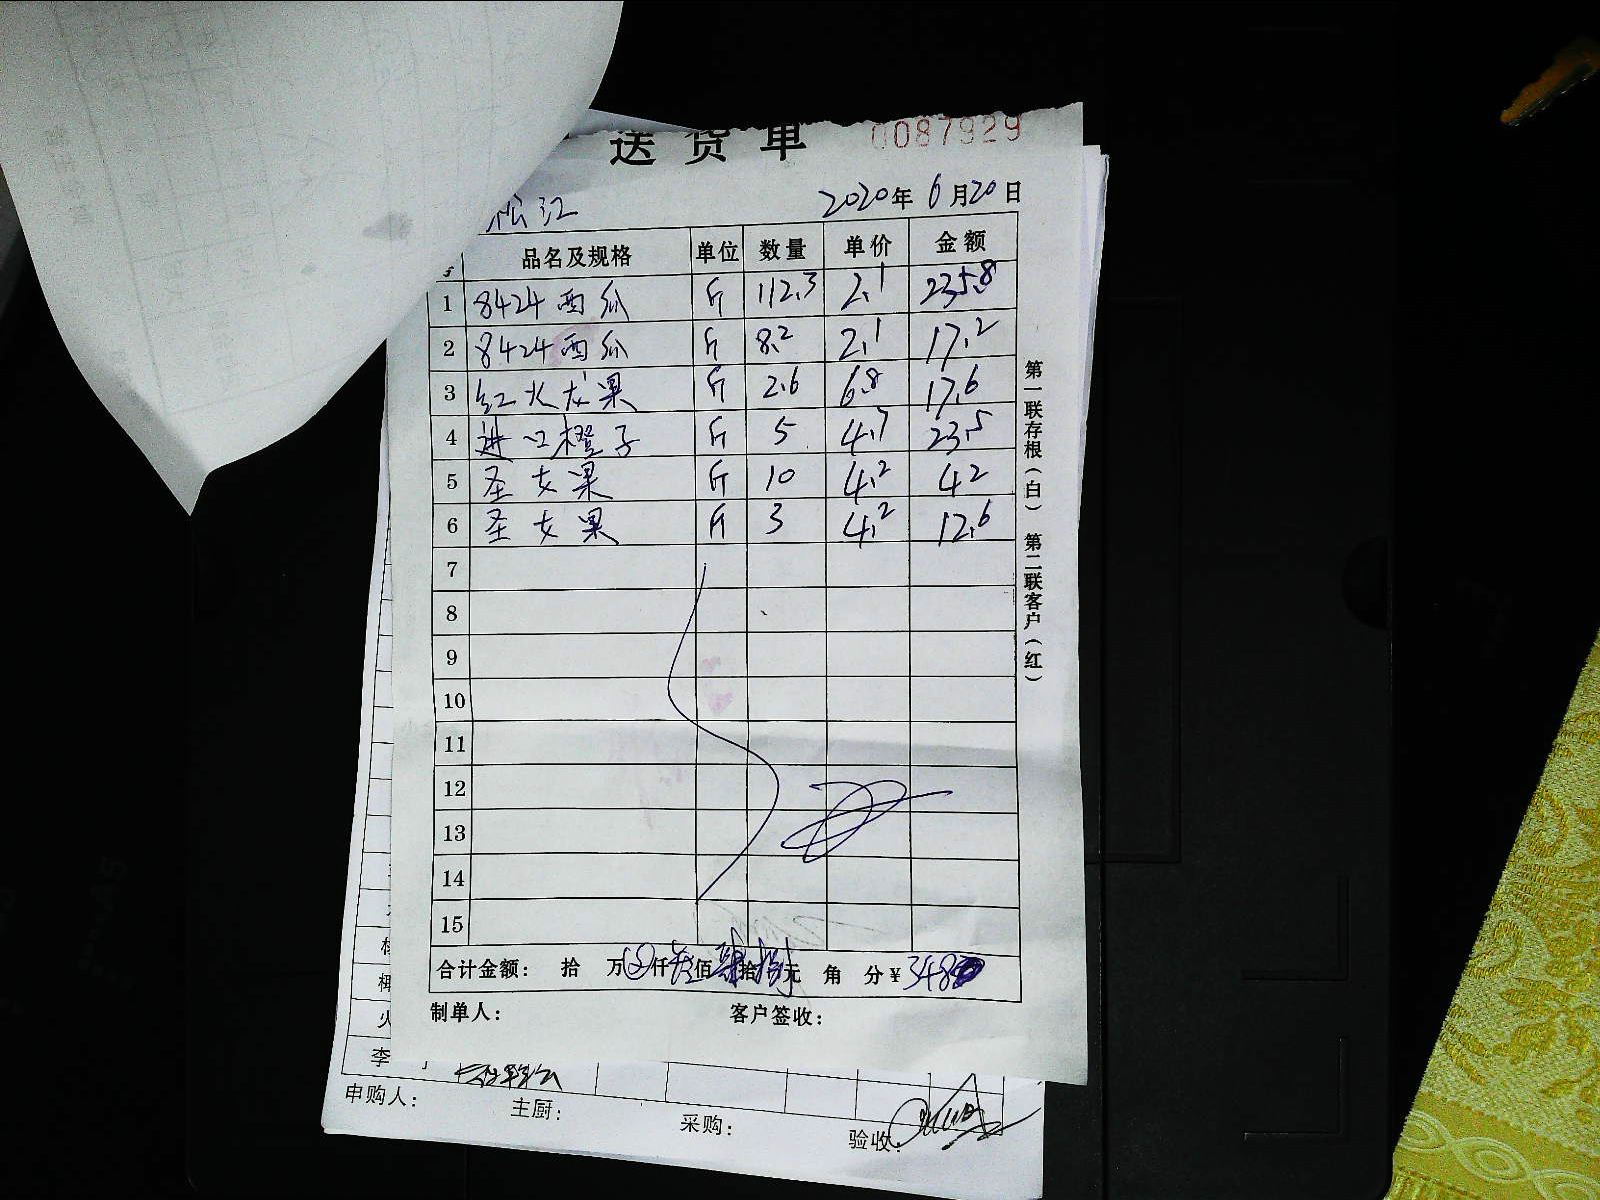 送货单 0087929
松江 2020年6月20日
品名及规格 单位 数量 单价 金额
1 8424西瓜 斤 112.3 2.1 235.8
2 8424西瓜 斤 8.2 2.1 17.2
3 红火龙果 斤 2.6 6.8 17.6
4 进口橙子 斤 5 4.7 23.5
5 圣女果 斤 10 4.2 42
6 圣女果 斤 3 4.2 12.6
7
8
9
10
11
12
13
14
15
合计金额: 拾 万 仟叁佰肆拾捌元 角 分¥348
制单人: 客户签收:
第一联存根(白) 第二联客户(红)
火
李
申购人: 主厨: 采购: 验收: